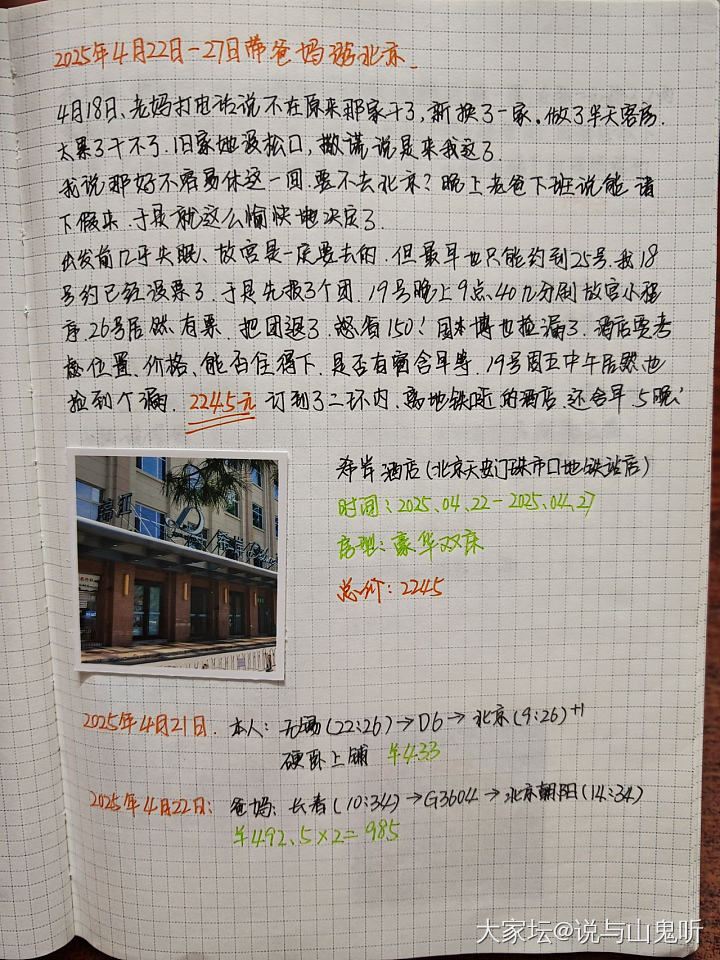 2025年4月22日-27日带爸妈游北京
4月18日、老妈打电话说不在原来那家干了,新换了一家。做了半天客房.
太累了干不了.旧家她没松口,撒谎说是来我这了.
我说那好不容易休这一回.要不去北京?晚上老爸下班说能请
下假来.于是就这么愉快地决定了.
出发前几乎失眠、故宫是一定要去的.但最早也只能约到25号.我18
号约已经没票了.于是先报3个团.19号晚上9点40几分刷故宫小程
序.26号居然有票.把团退了.怒省150!国博也捡漏了.酒店要考
虑位置、价格、能否住得下、是否有宿含早等.19号周五中午居然也
捡到个漏.2245元 订到了二环内、离地铁近的酒店.还含早.5晚!
寿岸酒店(北京天安门珠市口地铁站店)
时间:2025.04.22-2025.04.27
房型:豪华双床
总价:2245
2025年4月21日.本人:无锡(22:26)→D6→北京(9:26)+1
硬卧上铺 ¥433
2025年4月22日:爸妈:长春(10:34)→G3604→北京朝阳(14:34)
¥492.5×2=985
大家坛@说与山鬼听